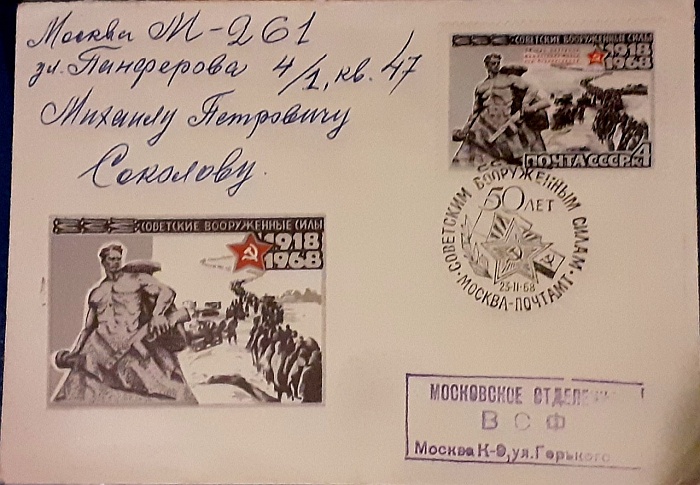 Москва М-261
ул. Панферова 4/1, кв. 47
Михаилу Петровичу
Соколову.
СОВЕТСКИЕ ВООРУЖЕННЫЕ СИЛЫ
1918
1968
ПОЧТА СССР К4
СОВЕТСКИМ ВООРУЖЕННЫМ СИЛАМ
50 ЛЕТ
23-11-68
МОСКВА-ПОЧТАМТ
СОВЕТСКИЕ ВООРУЖЕННЫЕ СИЛЫ
1918
1968
МОСКОВСКОЕ
ВСФ
Москва К-9, ул. Горького